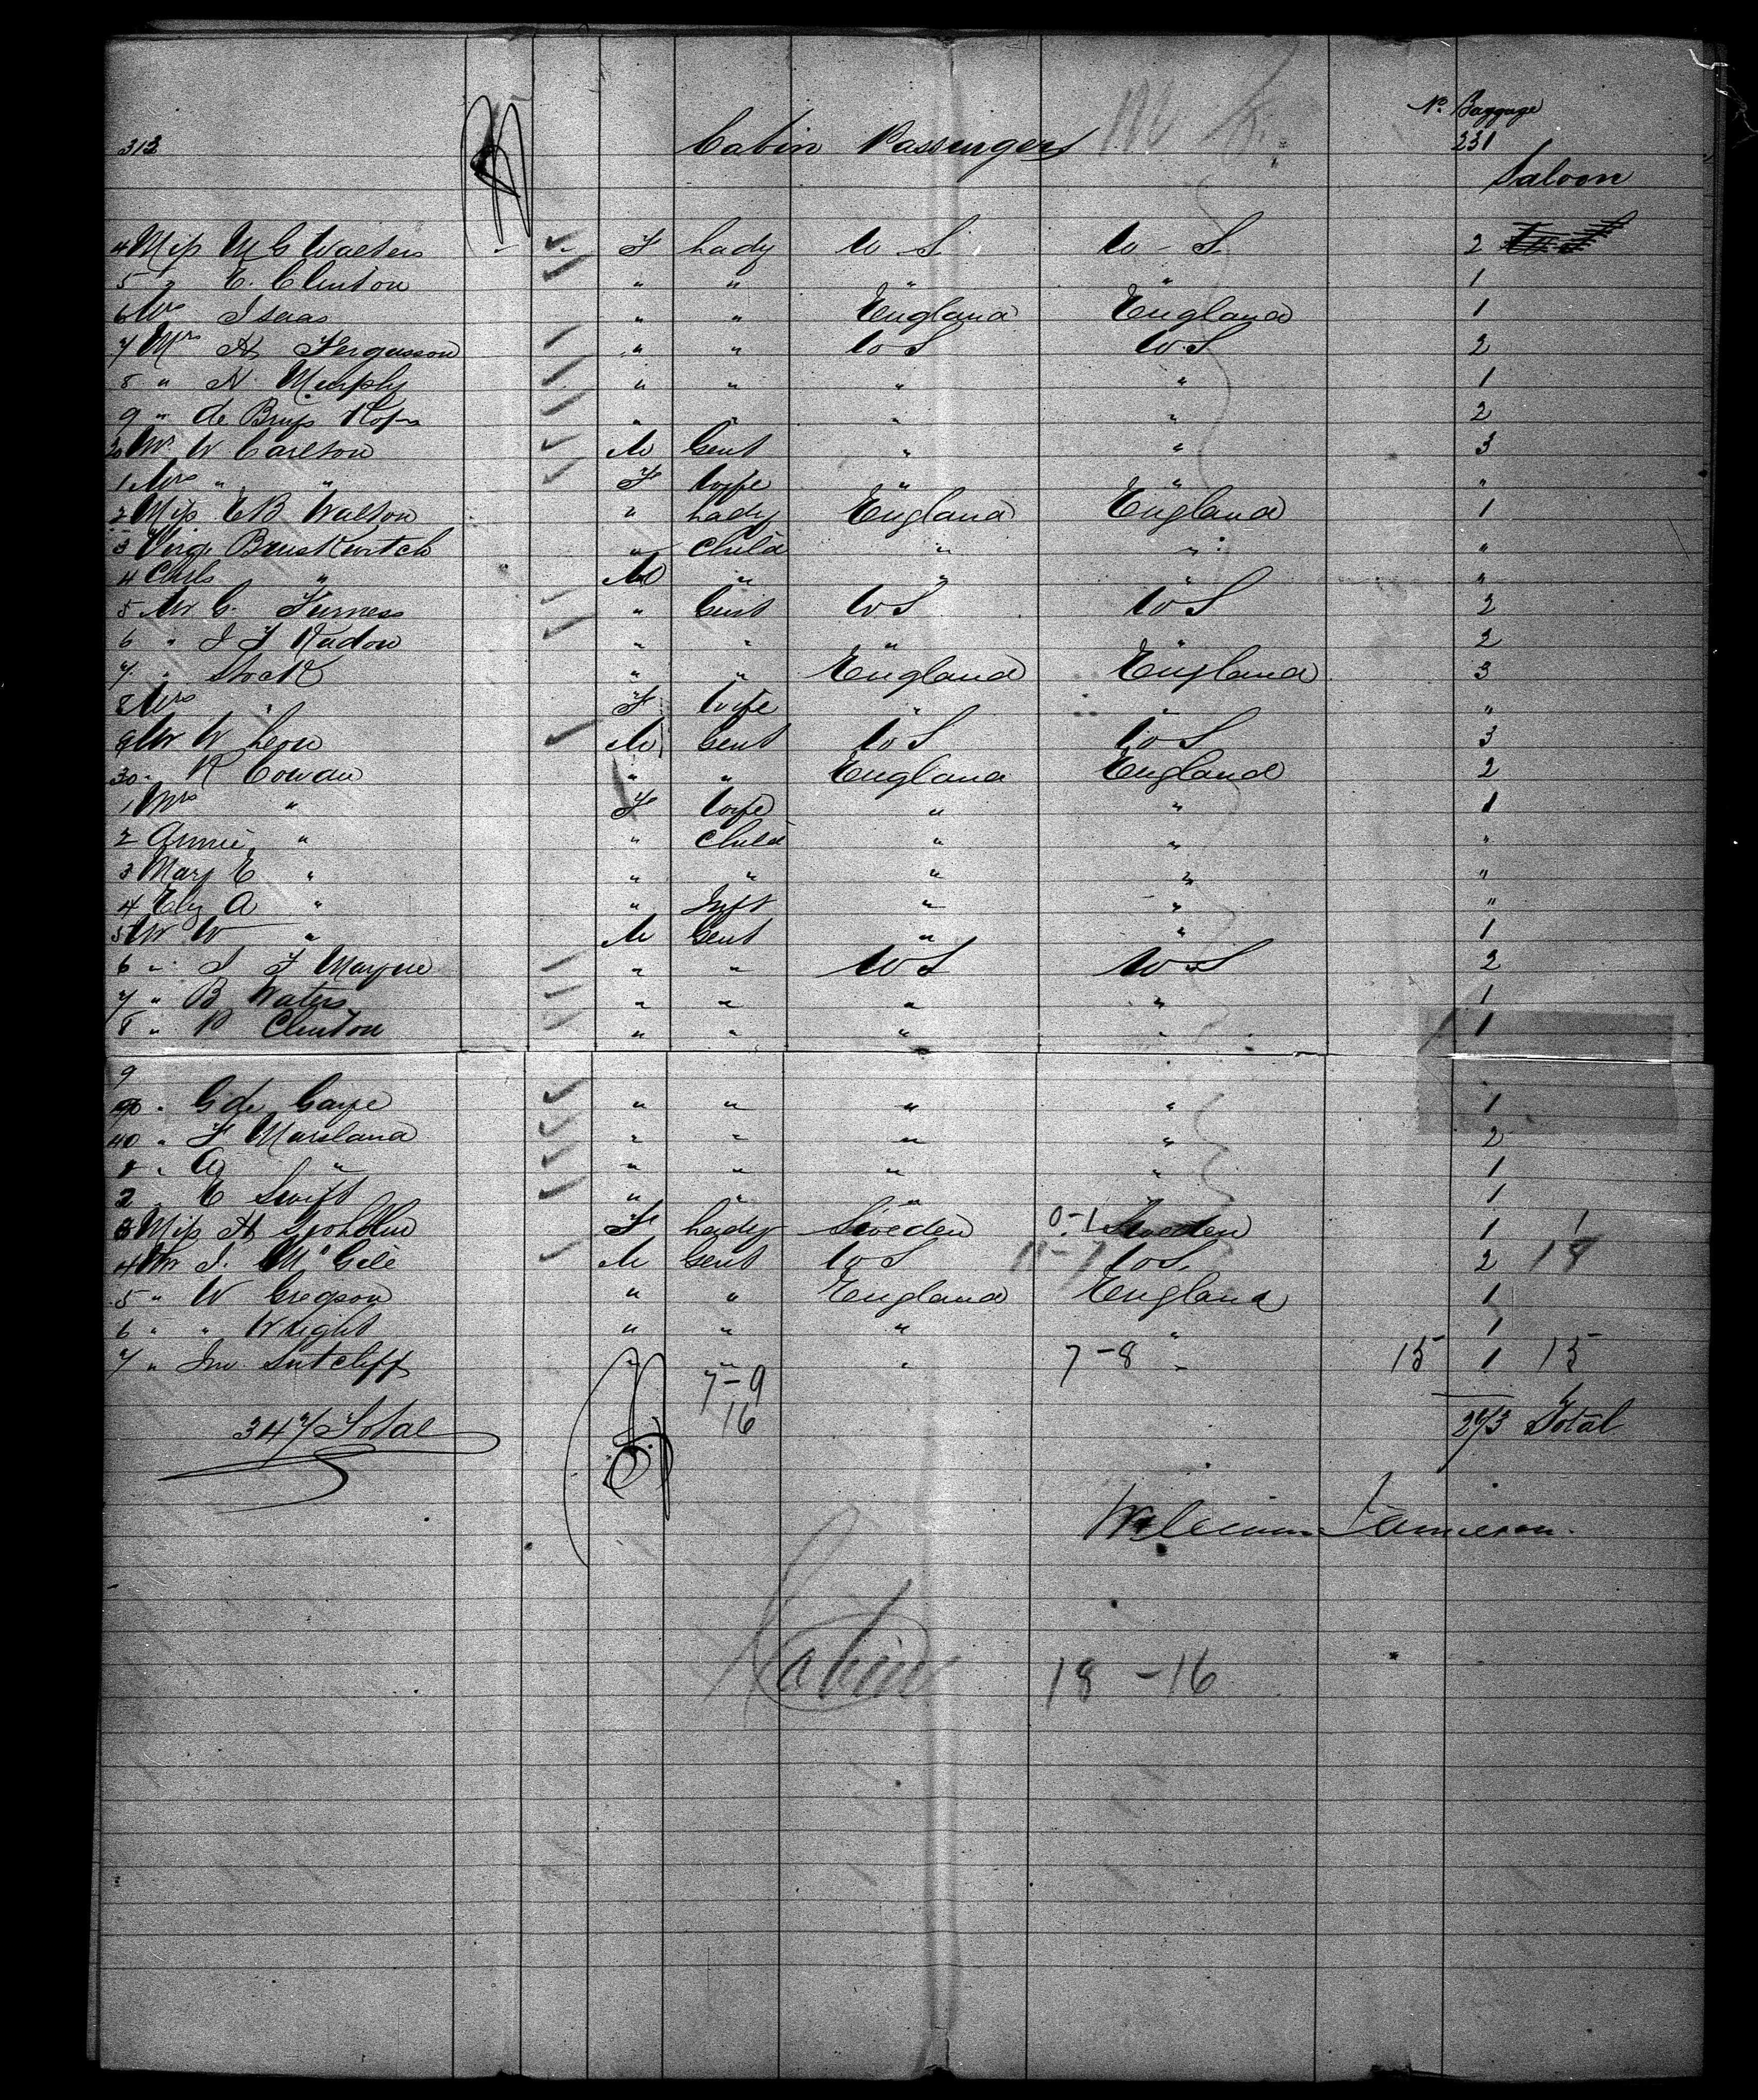 No. Baggage
313 Cabin Passengers 231
Saloon
4 Miss M G Walters F Lady U S U S 2
5 " E. Clinton " " " " 1
6 Mrs Isaas " " England England 1
7 Mrs A Fergusson " " U S U S 2
8 " N. Murphy " " " " 1
9 " de Bruys Kops " " " " 2
20 Mr W Carlson M Gent " " 3
1 Mrs " " F Wife " " "
2 Miss E B Walton " Lady England England 1
3 Virg. Bruskewitch " Child " " "
4 Chrls " M " " " "
5 Mr G. Furness " Gent U S U S 2
6 " J F Radon " " " " 2
7 " Stock " " England England 3
8 Mrs " F Wife " " "
9 Mr W Leon M Gent U S U S 3
30 " R Cowan " " England England 2
1 Mrs " F Wife " " 1
2 Annie " " Child " " "
3 Mary E " " " " " "
4 Eliz A " " Inft " " "
5 Mr W " M Gent " " 1
6 " J F Mayne " " U S U S 2
7 " B Waters " " " " 1
8 " R Clinton " " " " 1
9
" G de Gaye " " " " 1
40 " F Marsland " " " " 2
1 " A " " " " " 1
2 " E Swift " " " " 1
3 Miss A F Lady Sweden 0-1 Sweden 1 1
4 Mr J. McGee M Gent U S 11-7 U S. 2 18
5 " W Gregson " " England England 1
6 " " Wright " " " " 1
7 " Jno. Sutcliff " " " 7-8 " 15 1 15
7-9
16
347 Total 273 Total
William Jamieson.
Cabin 18 - 16